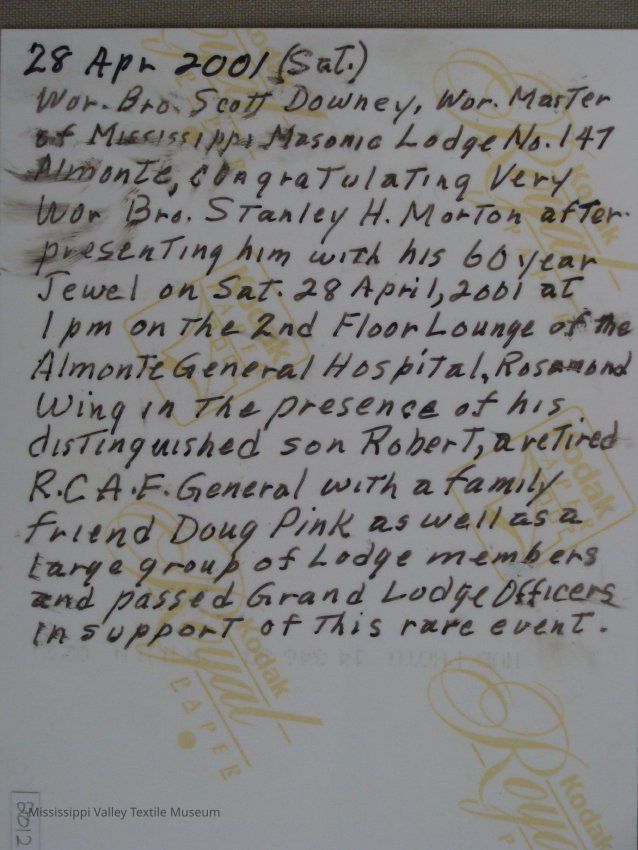 28 Apr 2001 (Sat.)
Wor. Bro. Scott Downey, Wor. Master
of Mississippi Masonic Lodge No. 147
Almonte, congratulating Very
Wor Bro. Stanley H. Morton after
presenting him with his 60 year
Jewel on Sat. 28 April, 2001 at
1 pm on the 2nd Floor Lounge of the
Almonte General Hospital, Rosamond
Wing in the presence of his
distinguished son Robert, a retired
R.C.A.F. General with a family
friend Doug Pink as well as a
large group of Lodge members
and passed Grand Lodge Officers
in support of this rare event.
Kodak
Royal
PAPER
Mississippi Valley Textile Museum